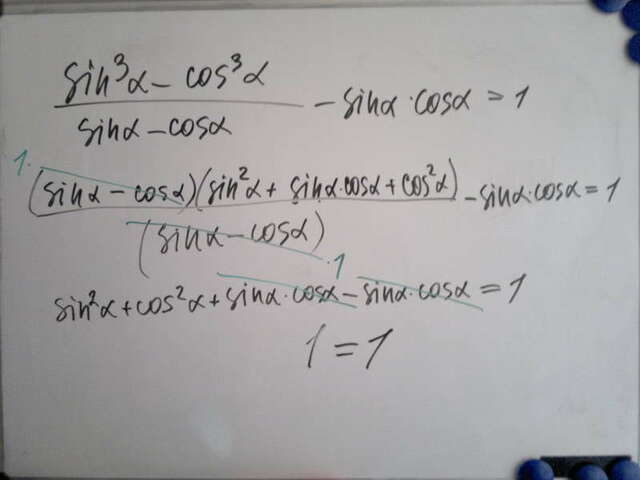 sin³α - cos³α / sinα - cosα - sinα · cosα = 1
1·
(sinα - cosα)(sin²α + sinα·cosα + cos²α) / (sinα - cosα) - sinα·cosα = 1
·1
sin²α + cos²α + sinα·cosα - sinα·cosα = 1
1 = 1